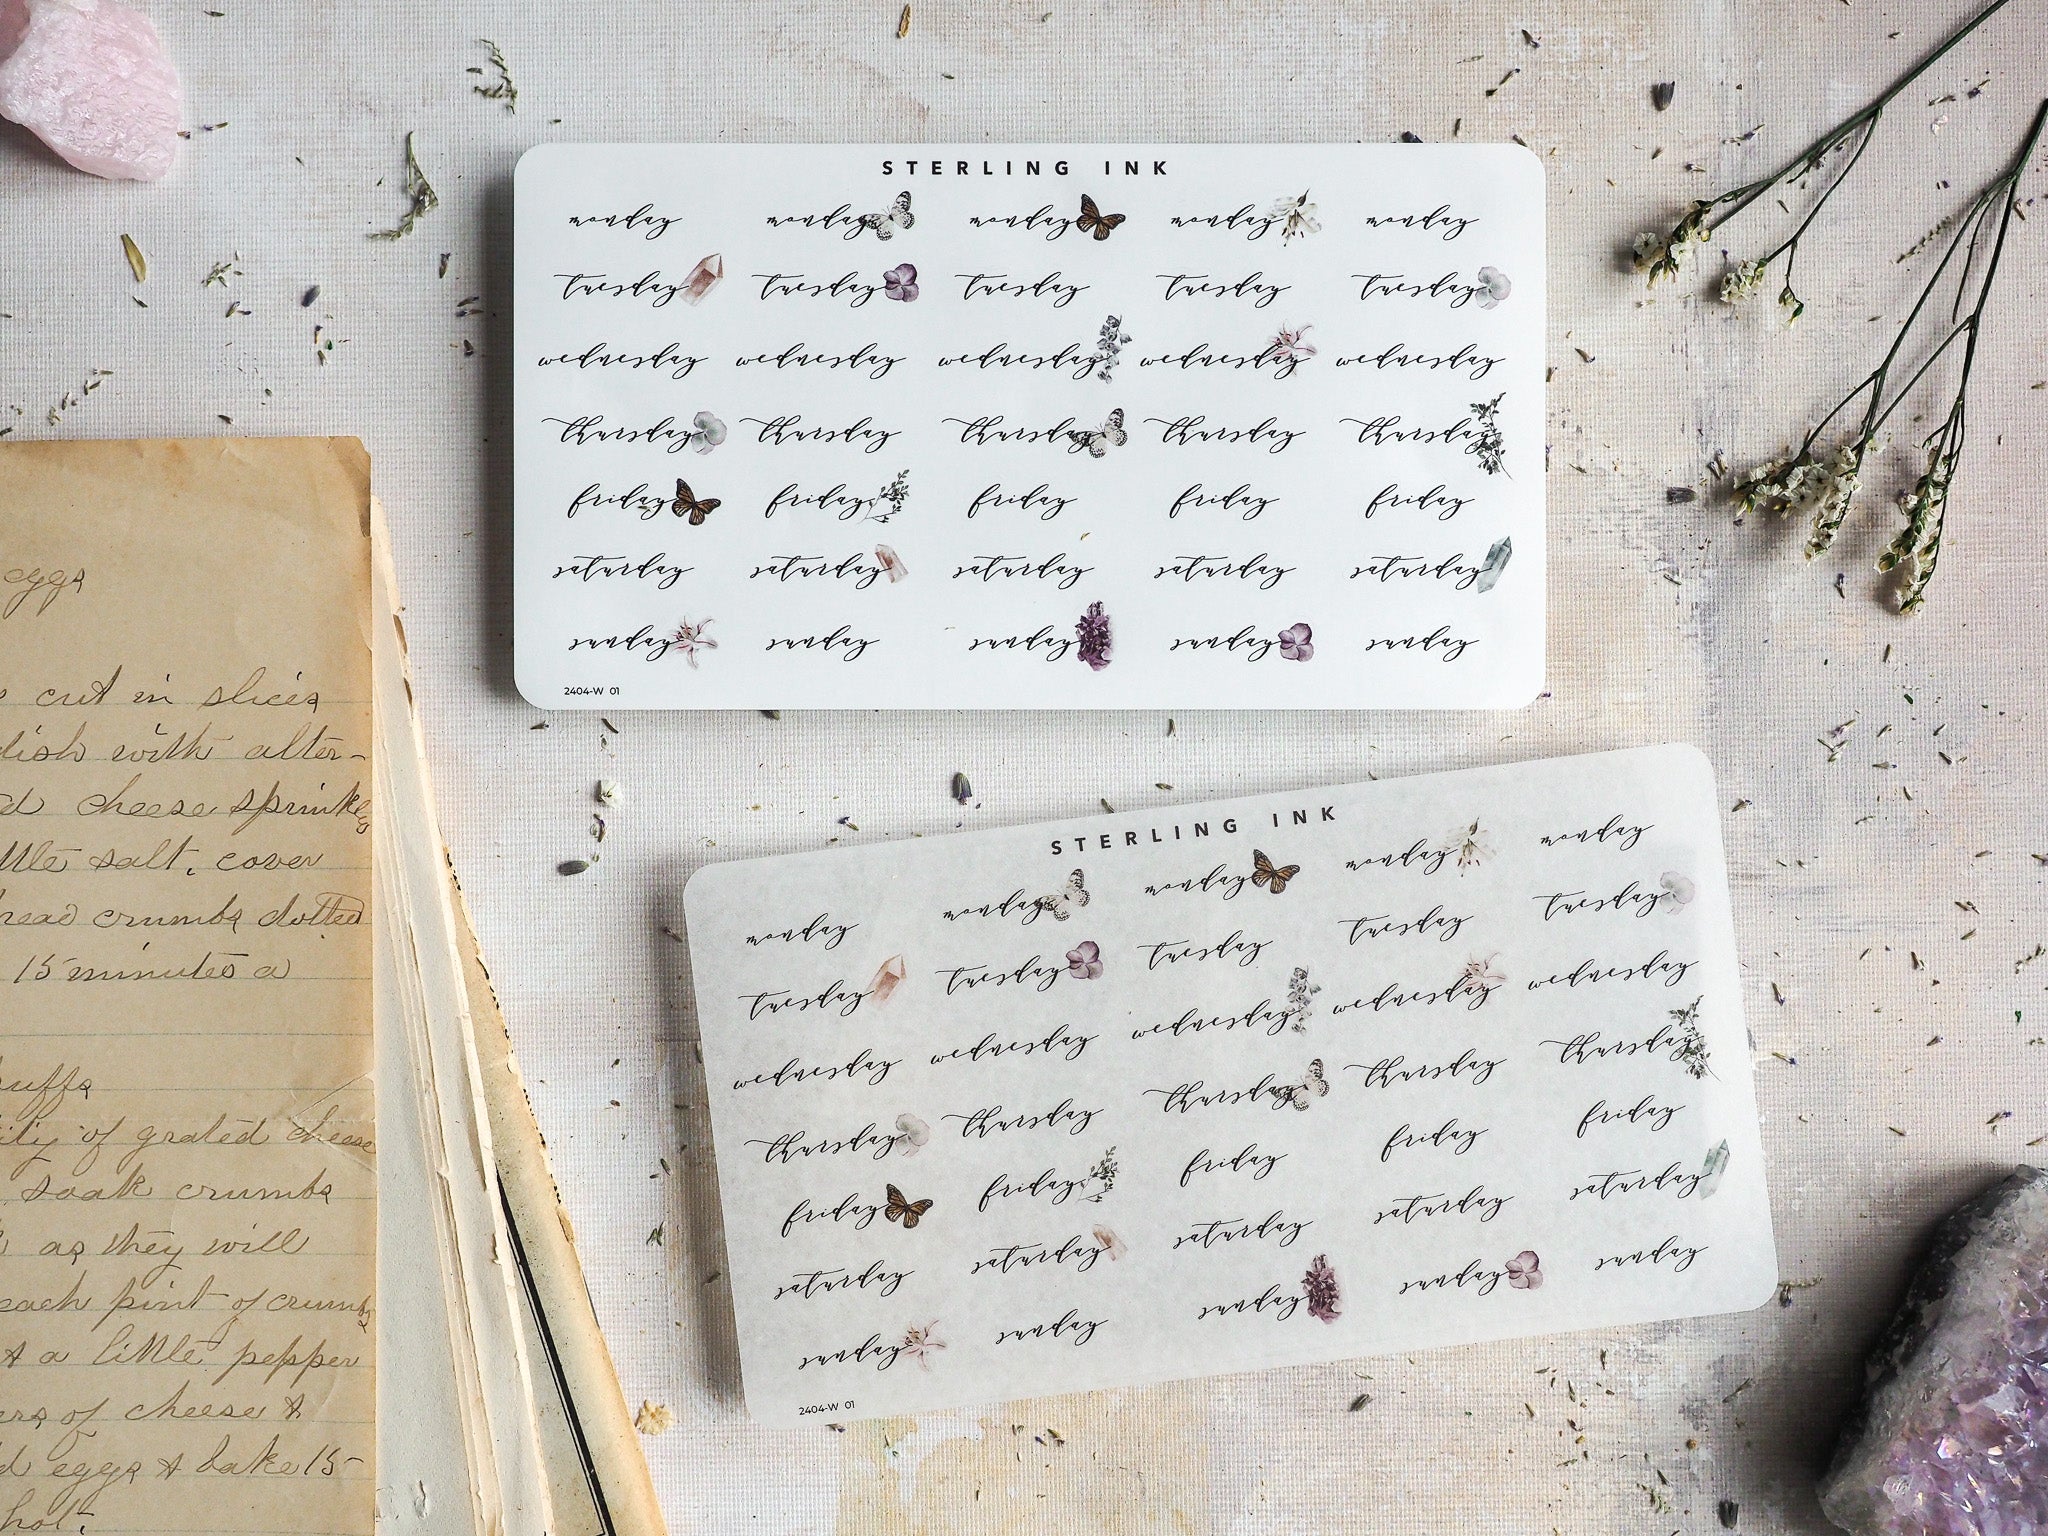 eggs
cut in slices
dish with alter-
d cheese sprinkles
little salt, cover
bread crumbs dotted
15 minutes a
Puffs
of grated cheese
soak crumbs
as they will
each pint of crumbs
& a little pepper
of cheese &
eggs & bake 15
hot.
STERLING INK
monday monday monday monday monday
tuesday tuesday tuesday tuesday tuesday
wednesday wednesday wednesday wednesday wednesday
thursday thursday thursday thursday thursday
friday friday friday friday friday
saturday saturday saturday saturday saturday
sunday sunday sunday sunday sunday
2404-W 01
STERLING INK
monday monday monday monday monday
tuesday tuesday tuesday tuesday tuesday
wednesday wednesday wednesday wednesday wednesday
thursday thursday thursday thursday thursday
friday friday friday friday friday
saturday saturday saturday saturday saturday
sunday sunday sunday sunday sunday
2404-W 01